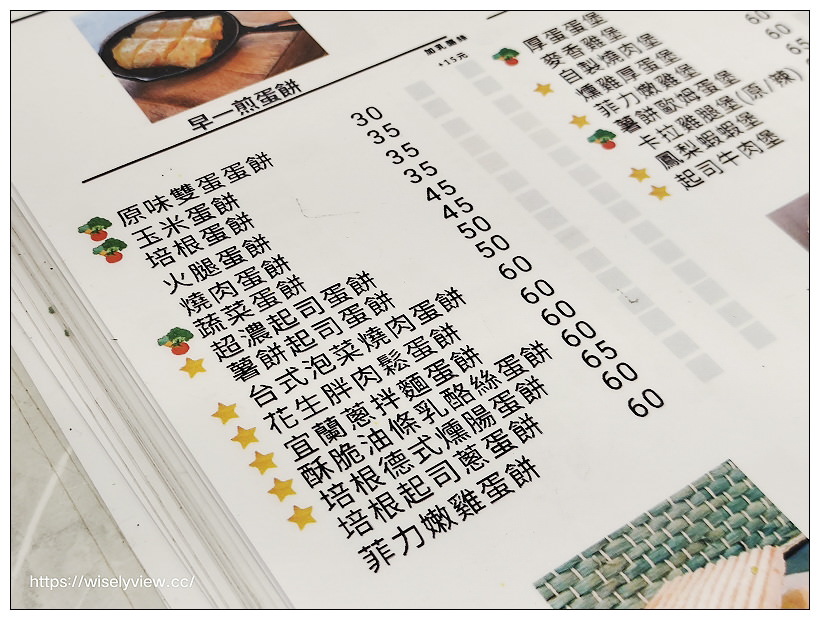 早一煎蛋餅
加乳酪絲
+15元
原味雙蛋蛋餅 30
玉米蛋餅 35
培根蛋餅 35
火腿蛋餅 35
燒肉蛋餅 45
蔬菜蛋餅 45
超濃起司蛋餅 50
薯餅起司蛋餅 50
台式泡菜燒肉蛋餅 60
花生胖肉鬆蛋餅 60
宜蘭蔥拌麵蛋餅 60
酥脆油條乳酪絲蛋餅 60
培根德式燻腸蛋餅 65
培根起司蔥蛋餅 60
菲力嫩雞蛋餅 60
厚蛋蛋堡
麥香雞堡
自製燒肉堡
燻雞厚蛋堡
菲力嫩雞堡
薯餅歐姆蛋堡
卡拉雞腿堡(原/辣)
鳳梨蝦蝦堡
起司牛肉堡
60
60
https://wiselyview.cc/